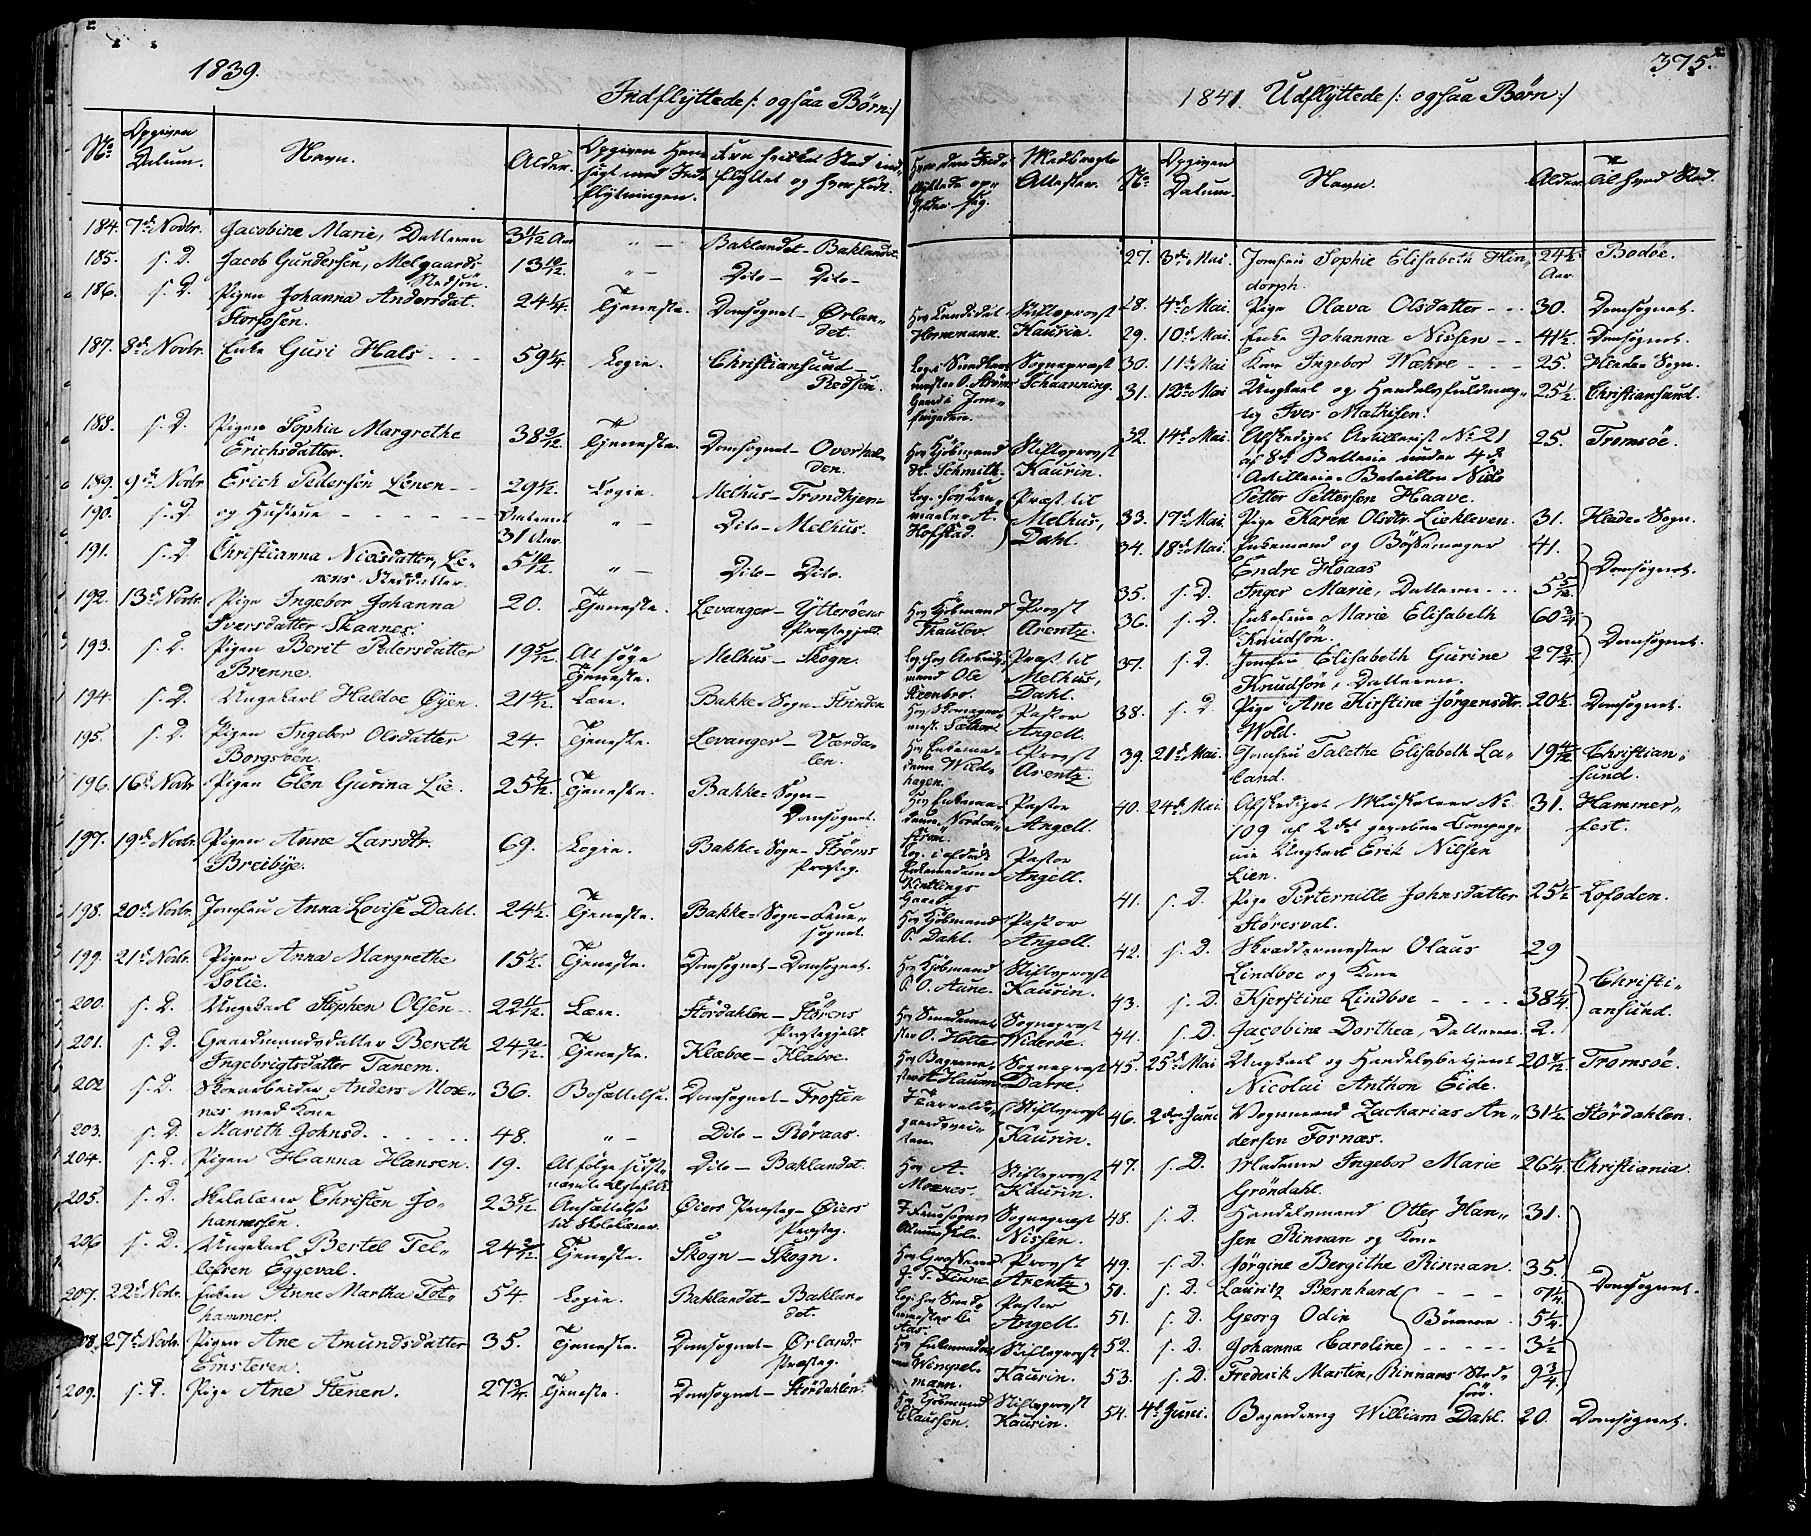 1839.
Indflyttede /: ogsaa Børn :/
No
Opgiven Datum.
Navn.
Alder.
Opgiven Hensigt med Indflytningen.
Fra hvilket Sted indflyttet og hvor født.
Hvor den Indflyttede opholder sig.
Medbragte Attester.
184. 7de Novbr. Jacobine Marie, Datteren 3 4/12 Aar " — Baklandet - Baklandet.
185. s. D. Jacob Gundersen, Melgaards Stedsön. 13 10/12 " — Dito - Dito -
186. s. D. Pigen Johanna Andersdat. Storfosen. 24 1/4. Tjeneste. Domsognet - Ørlandet. Hos Candidat Hornemann. Stiftsprovst Kaurin.
187. 8de Novbr. Enke Guri Hals - - - 59 1/4. Logie. Christiansund - Rødsen. Sognepræst Schanning.
188. s. D. Pigen Sophia Margrethe Erichsdatter. 38 9/12 Tjeneste. Domsognet - Overhalden. Hos Kjöbmand H. Schmith. Stiftsprovst Kaurin.
189. 9de Novbr Erich Pedersen Lönen - - 29 1/2. Logie. Melhus - Trondhjem - Hofstad. Præst til Melhus, Dahl.
190. s. D. og Hustrue - - - - - - 31 Aar. " — Dito - Melhus.
191. s. D Christianna Nielsdatter, Lönens Steddatter. 5 10/12. " — Dito - Dito.
192. 13de Novbr. Pige Ingebor Johanna Iversdatter Skannes. 20. Tjeneste. Levanger - Ytterøens Præstegjeld. Hos Kjöbmand Thaulov. Provst Arentz.
193. s. D. Pigen Berit Petersdatter Brenne. 19 5/12 At søge Tjeneste. Melhus - Skogn. Log. hos Arbeidsmand Ole Steenbro. Præst til Melhus, Dahl.
194. s. D. Ungkarl Haldoe Øyen. 21 4/12. Lære. Bakke-Sogn - Strinden Hos Skomagermest. Sæther. Pastor Angell.
195. s. D Pigen Ingebor Olsdatter Borgsöen. 24. Tjeneste. Levanger - Værdalen. Provst Arentz.
196. 16de Novbr Pigen Elen Gurina Lie. 25 2/12. Tjeneste. Bakke-Sogn - Domsognet. Pastor Angell.
197. 19de Novbr. Pigen Anne Larsdtr. Breibye. 69. Logie. Bakke-Sogn - Ströms Præsteg. Pastor Angell.
198. 20de Novbr. Jomfru Anna Lovise Dahl. 24 1/2. Tjeneste. Bakke-Sogn - Fruesognet. Hos Kjöbmand P. Dahl. Pastor Angell.
199. 21de Novbr. Pigen Anna Margrethe Solie. 15 1/2. Tjeneste. Domsognet - Domsognet. Hos Kjöbmand P. O. Aune. Stiftsprovst Kaurin.
200. s. D. Ungkarl Stephen Olsen 22 4/12. Lære. Stördahlen - Störens Præstegjeld. Hos Smedemester O. Holte. Sognepræst Widerøe.
201. s. D. Gaardmandsdatter Bereth Ingebrigtsdatter Tanem. 24 2/12. Tjeneste. Klæboe - Klæboe. Sognepræst Darre.
202 s. D. Skoearbeider Anders Moxnes med Kone 36. Bosættelse. Domsognet - Frosten Stiftsprovst Kaurin.
203. s. D. Marith Johnsd. - - - - 48. " — Dito - Röraas.
204. s. D. Pigen Hanna Hansen. 19. At fölge sidstnævnte Ægtefolk. Dito - Baklandet. Hos A. Moxnes. Stiftsprovst Kaurin.
205. s. D. Skolelærer Christen Johannessen. 23 8/12. Ansættelse til Skolelærer. Øiers Præsteg - Øiers Præsteg. Sognepræst Nissen.
206 s. D. Ungkarl Bertel Tellefsen Eggeval. 24 2/12. Tjeneste. Skogn - Skogn. J. F. Finne. Provst Arentz.
207. 22de Novbr. Enken Anne Martha Tothammer. 54. Logie. Baklandet - Baklandet. Pastor Angell.
208. 27de Novbr. Pigen Ane Amundsdatter Emsteren. 35. Tjeneste. Domsognet - Ørlands Præsteg. Stiftsprovst Kaurin.
209. s. D. Pige Ane Stenen. 27 3/4. Tjeneste. Domsognet - Stördahlen. Hos Kjöbmand Claussen. Stiftsprovst Kaurin.
375.
1841. Udflyttede /: ogsaa Børn :/
No.
Opgiven Datum.
Navn.
Alder.
Til hvad Sted.
27. 3de Mai. Jomfru Sophie Elisabeth Hindorph. Aar Bodøe.
28. 4de Mai. Pige Olava Olsdatter - - - 30. Domsognet.
29. 10de Mai. Enke Johanna Nissen - - 41 1/2. Domsognet.
30. 11te Mai. Kone Ingebor Wæhre - - - 25. Hlade-Sogn.
31. 12te Mai Ungkarl og Handelsfuldmægtig Iver Mathisen. 25 1/2. Christiansund.
32. 14de Mai. Afskediget Artillerist No 21 af 8de Batterie under 4de Artillerie-Batallion Niels Petter Pettersen Haave. 25. Tromsøe.
33. 17de Mai. Pige Karen Olsdtr. Liekleven. 31. Hlade-Sogn.
34. 18de Mai. Enkemand og Bössemager Endre Hoaas 41.
35. s. D. Inger Marie, Datteren - - - 5 5/12. Domsognet.
36. s. D. Enkefrue Marie Elisabeth Knudsön. 60 3/4
37. s. D. Jomfru Elisabeth Gurine Knudsön, Datteren. 27 3/4. Domsognet.
38. s. D Pige Ane Kirstine Jörgensdtr. Wold. 20 1/2. Domsognet.
39. 21de Mai. Jomfru Talethe Elisabeth Laland. 19 4/12 Christiansund.
40. 24de Mai Afskediget Musketeer No 109 af 2det gevorbne Compagnie Ungkarl Erik Nilsen Lien. 31. Hammerfest.
41. s. D. Pige Perternille Johnsdatter Störesval. 25 1/2 Lofoden.
42. s. D. Skræddermester Olaus Lindboe og Kone 29
43. s. D. Kjerstine Lindboe - - - - 38 1/4. Christiansund.
44. s. D. Jacobine Dorthea, Datteren 2.
45. 25de Mai Ungkarl og Handelsbetjent Nicolai Anthon Eide. Tromsøe.
46. 2den Juni Vognmand Zacharias Andersen Fornæs. 31 1/2. Stördahlen.
47. s. D. Madame Ingebor Marie Gröndahl. 26 1/4. Christiania.
48. s. D. Handelsmand Otter Hansen Rinnan og Kone 31.
49. s. D. Jørgine Bergithe Rinnan. 35.
50. s. D. Lauritz Bernhard - - - 7 1/4.
51. s. D. Georg Odin Börnene. 5 1/4. Domsognet.
52. s. D. Johanna Caroline - - - - 3 1/2
53. s. D. Frederik Martin, Rinnans Stedsön. 9 3/4.
54. 4de Juni. Bagerdreng William Dahl. 20. Domsognet.